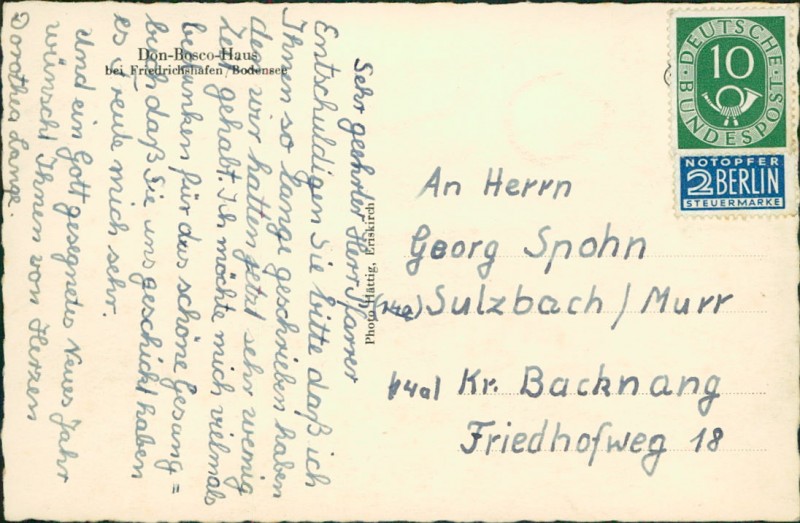 Don-Bosco-Haus
bei Friedrichshafen/Bodensee
Sehr geehrter Herr Pfarrer
Entschuldigen Sie bitte daß ich
Ihnen so lange geschrieben haben
den wir hatten jetzt sehr wenig
Zeit gehabt. Ich möchte mich vielmals
bedanken für das schöne Gesung=
buch daß Sie uns geschickt haben
es freute mich sehr.
Und ein Gott gesegnetes Neues Jahr
wünscht Ihnen von Herzen
Dorothea Lange.
Photo Hättig, Eriskirch
DEUTSCHE
10
BUNDESPOST
NOTOPFER
2 BERLIN
STEUERMARKE
An Herrn
Georg Spohn
(14a) Sulzbach/Murr
14a) Kr. Backnang
Friedhofweg 18